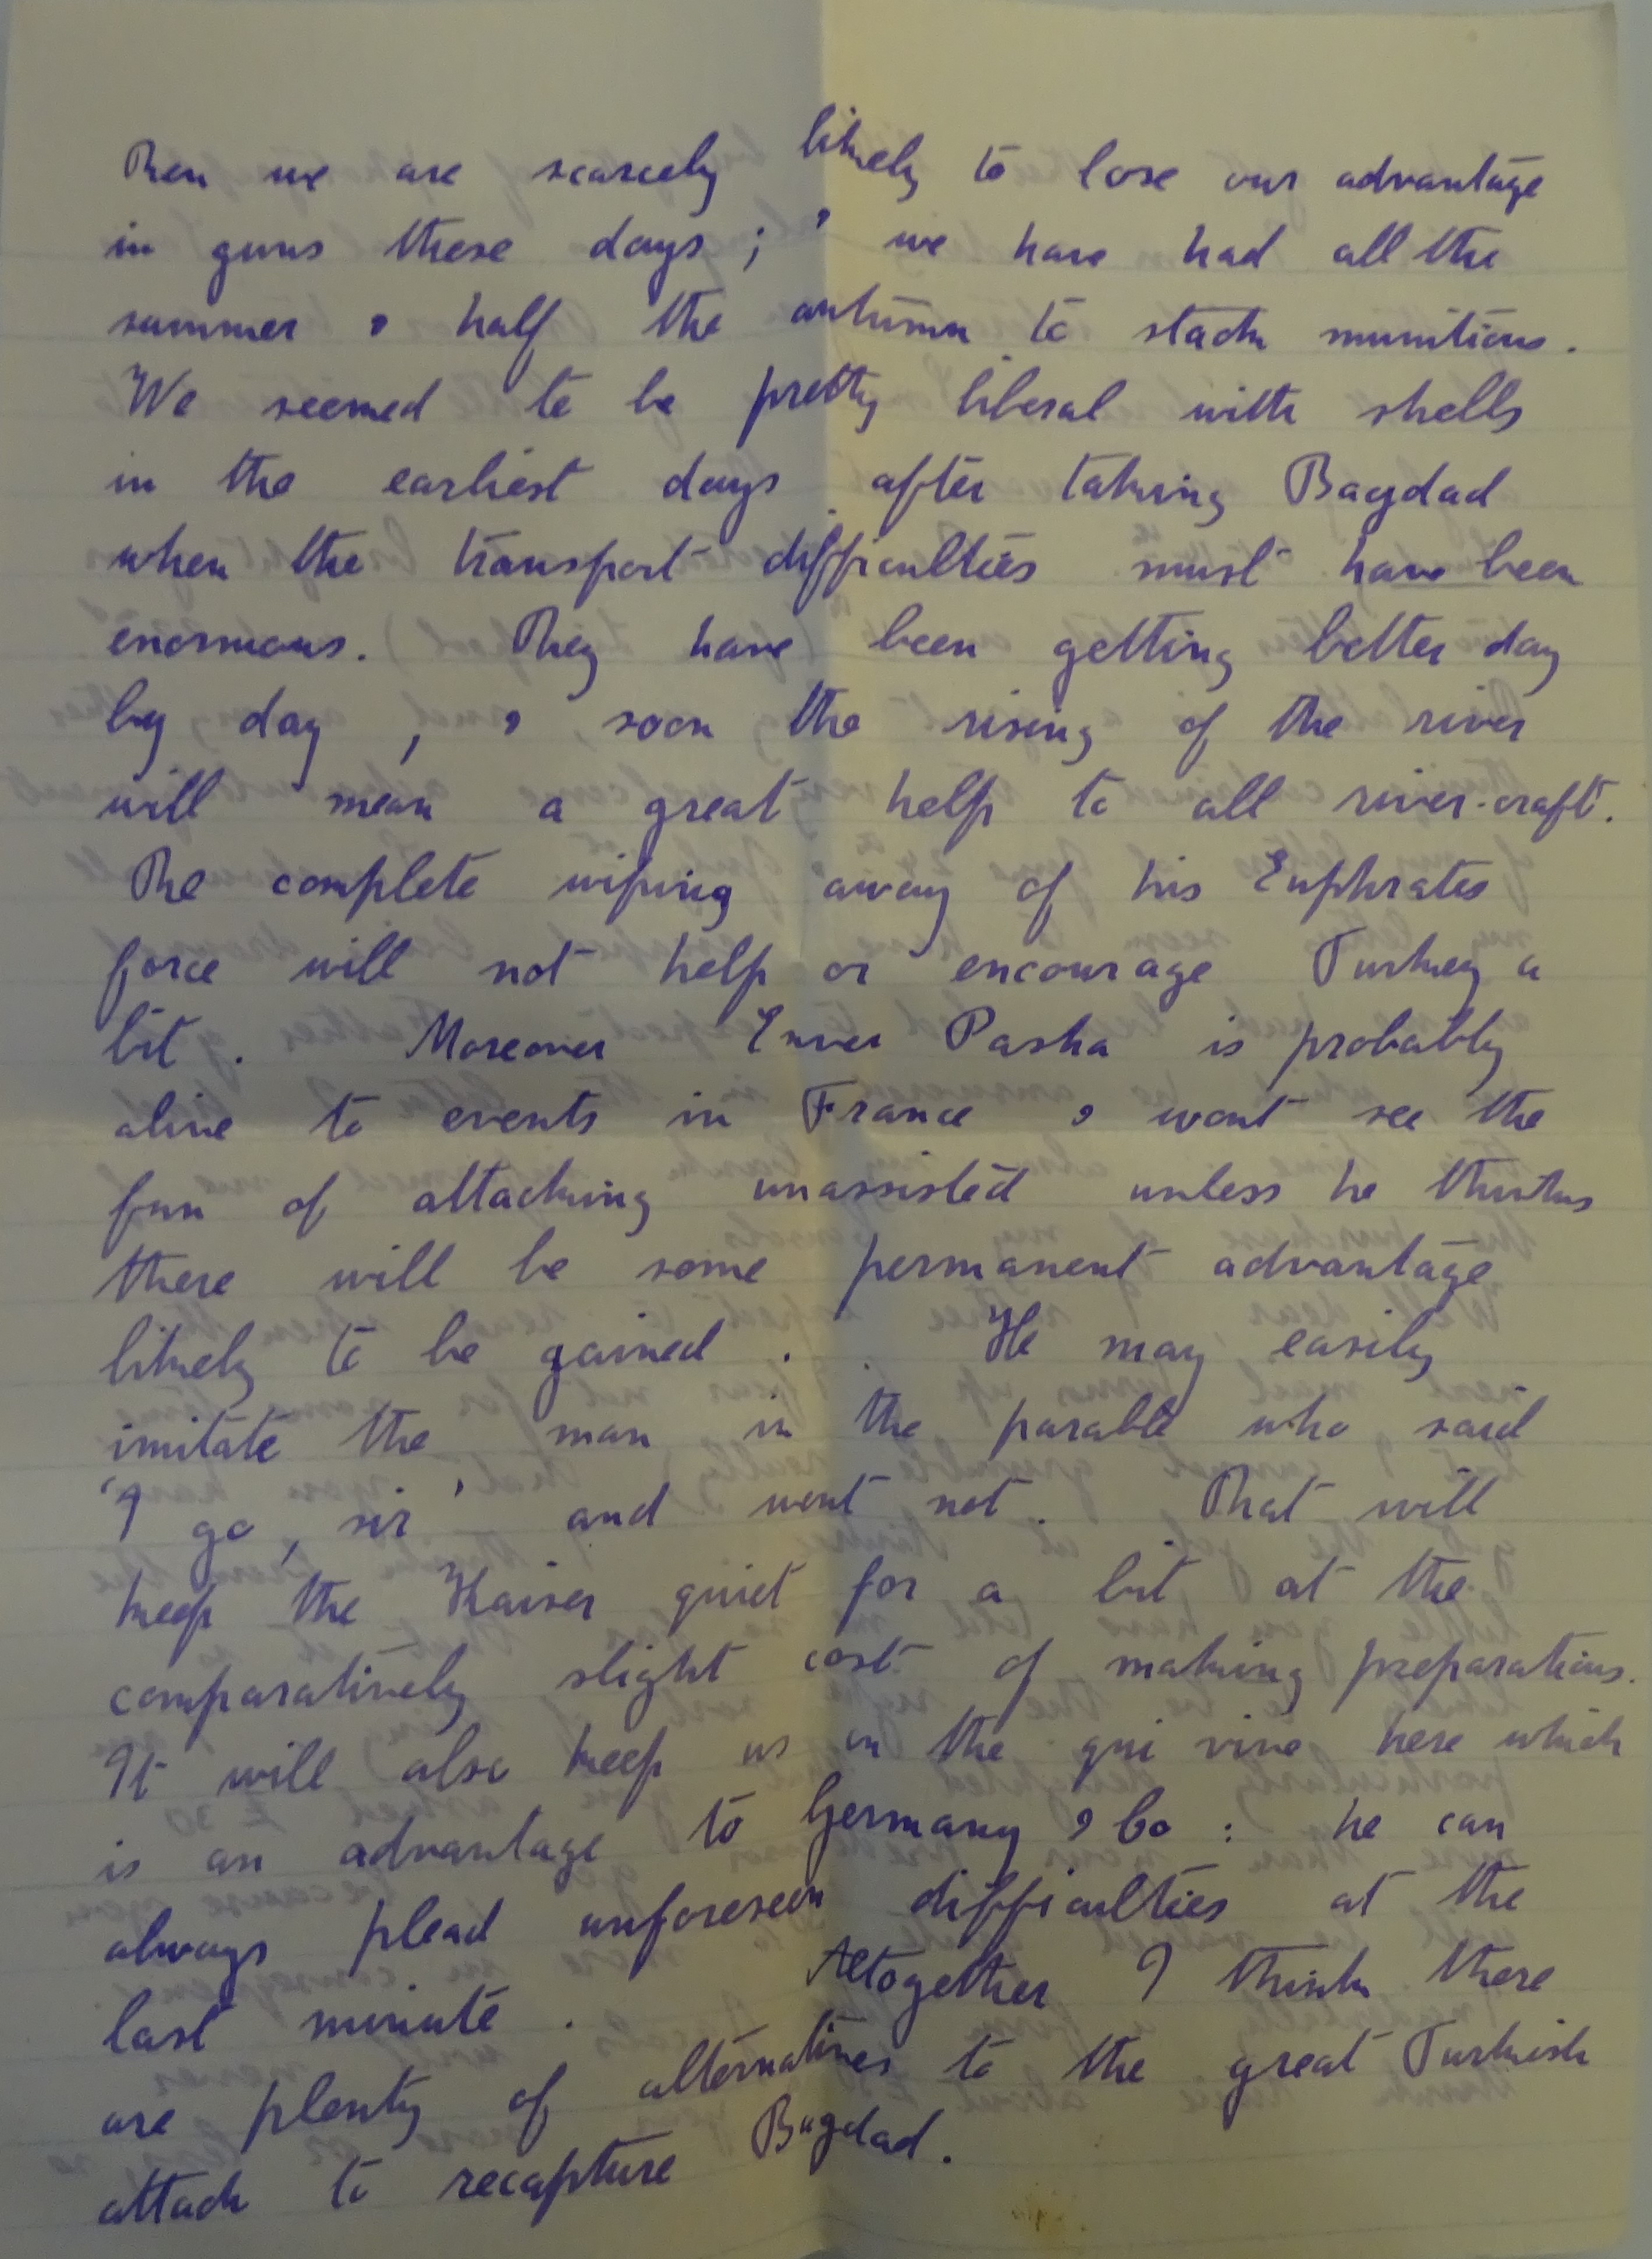 Then we are scarcely likely to lose our advantage
in guns these days ; & we have had all the
summer & half the autumn to stack munitions.
We seemed to be pretty liberal with shells
in the earliest days after taking Bagdad
when the transport difficulties must have been
enormous. They have been getting better day
by day , & soon the rising of the river
will mean a great help to all river-craft.
The complete wiping away of his Euphrates
force will not help or encourage Turkey a
bit . Moreover Enver Pasha is probably
alive to events in France & wont see the
fun of attacking unassisted unless he thinks
there will be some permanent advantage
likely to be gained . He may easily
imitate the man in the parable who said
'I go, sir' and went not. That will
keep the Kaiser quiet for a bit at the
comparatively slight cost of making preparations.
It will also keep us on the qui vive here which
is an advantage to Germany & Co : he can
always plead unforeseen difficulties at the
last minute . Altogether I think there
are plenty of alternatives to the great Turkish
attack to recapture Bagdad.